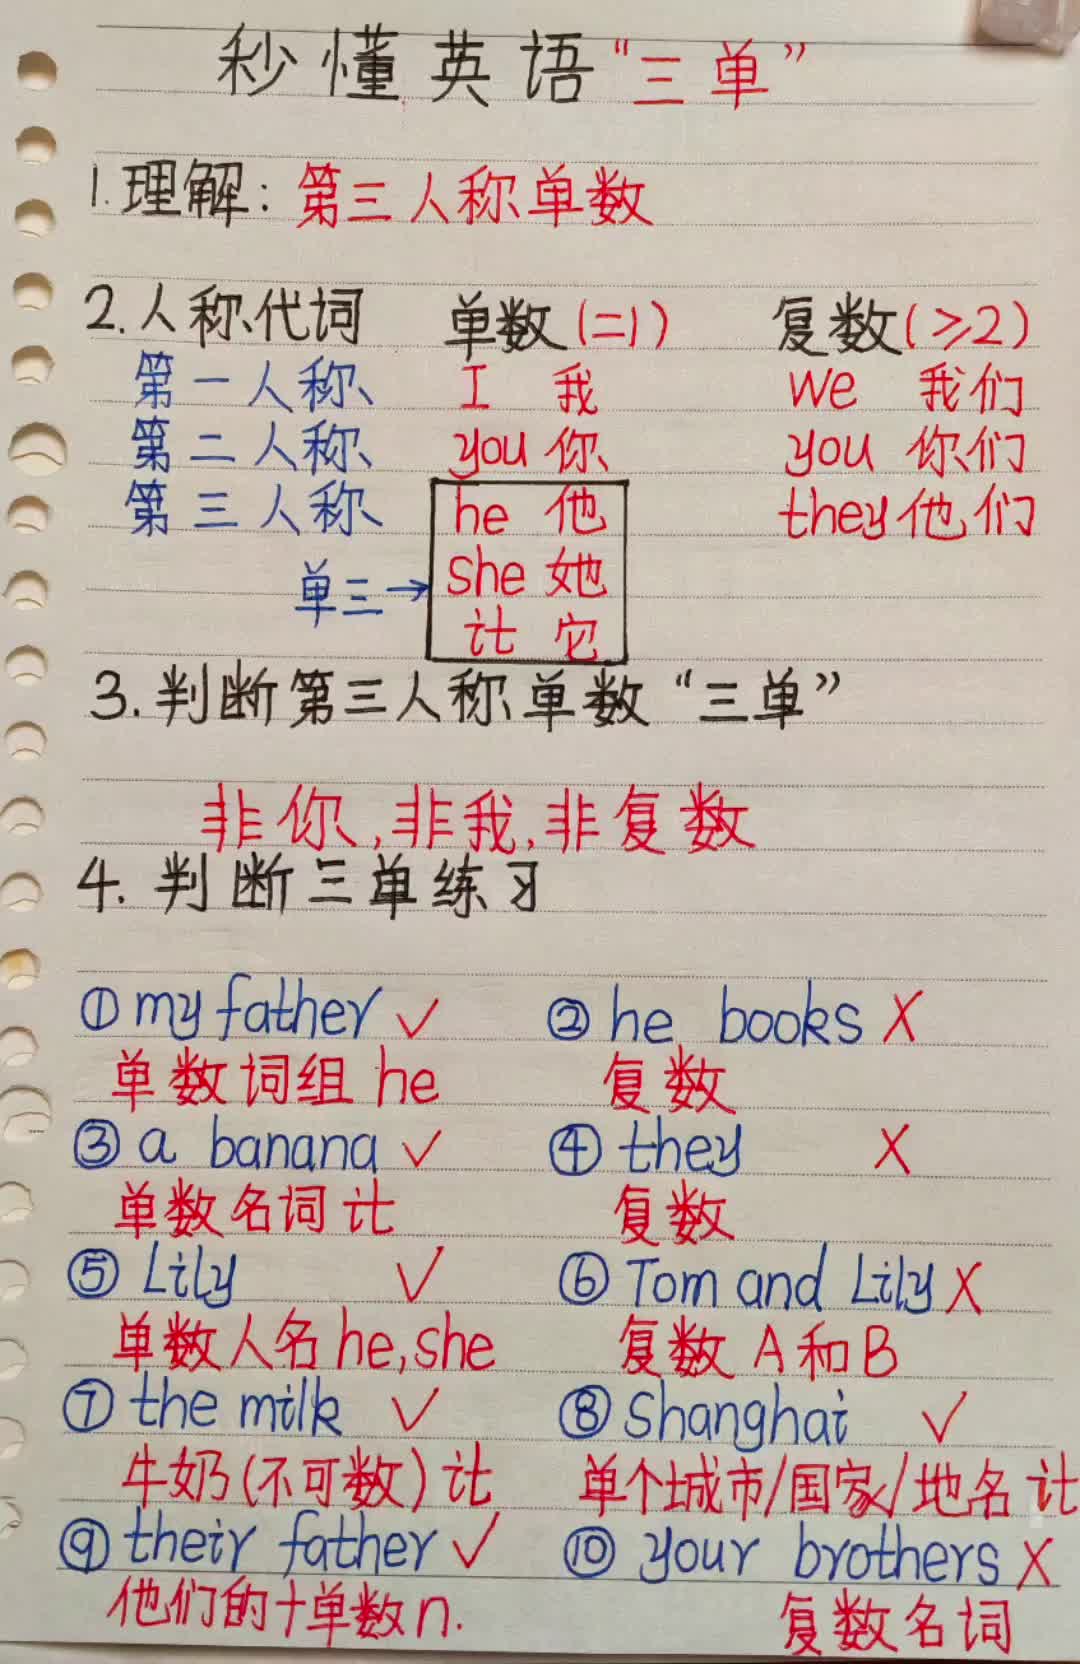 秒懂英语“三单”
1.理解：第三人称单数
2.人称代词 单数(=1) 复数(≥2)
第一人称 I 我 we 我们
第二人称 you 你 you 你们
第三人称 he 他 they 他们
单三→ she 她
it 它
3.判断第三人称单数“三单”
非你,非我,非复数
4.判断三单练习
①my father ✓ ②he books X
单数词组 he 复数
③a banana ✓ ④they X
单数名词 it 复数
⑤Lily ✓ ⑥Tom and Lily X
单数人名 he,she 复数 A和B
⑦the milk ✓ ⑧Shanghai ✓
牛奶(不可数) it 单个城市/国家/地名 it
⑨their father ✓ ⑩your brothers X
他们的+单数n. 复数名词